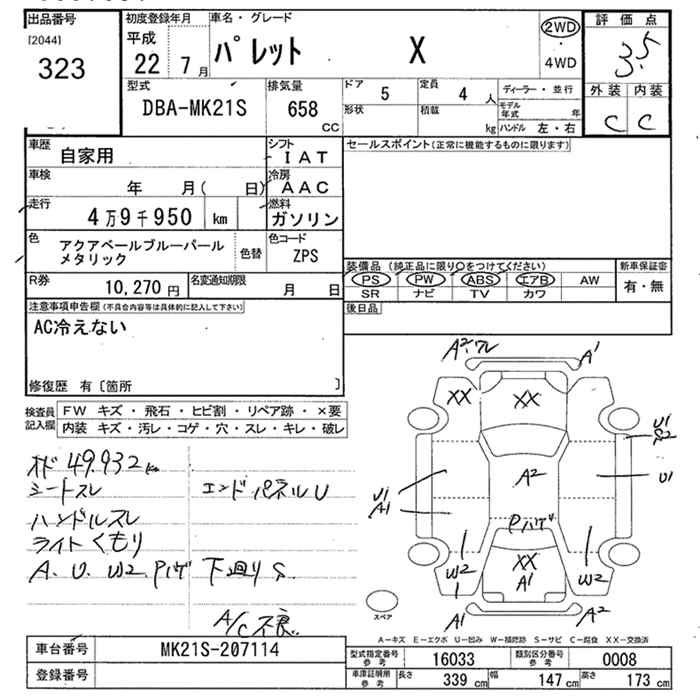 出品番号 初度登録年月 車名・グレード 評価点
[2044] 平成 2WD
323 22 7月 パレット X ・ 3.5
4WD
型式 排気量 ドア 5 定員 4人 ディーラー・並行 外装 内装
DBA-MK21S 658 CC 形状 積載 kg モデル年式 年 C C
ハンドル 左・右
車歴 自家用 シフト IAT セールスポイント(正常に機能するものに限ります)
車検 年 月( 日) 冷房 AAC
走行 4万9千950 km 燃料 ガソリン
色 アクアペールブルーパール 色替 色コード
メタリック ZPS
装備品 (純正品に限り○をつけてください) 新車保証書
R券 10,270円 名変通知期限 月 日 PS PW ABS エアB AW 有・無
SR ナビ TV カワ
注意事項申告欄(不具合内容等は具体的に記入して下さい) 後日品
AC冷えない
修復歴 有〔箇所 〕
検査員 FW キズ・飛石・ヒビ割・リペア跡・×要
記入欄 内装 キズ・汚レ・コゲ・穴・スレ・キレ・破レ
オド 49.932km
シートスレ エンドパネルU
ハンドルスレ
ライトくもり
A. U. W2. Pハゲ 下廻りS.
A/C不良
A2.ワレ A1
XX XX
U1
S2
A2 U1
U1
A1
Pハゲ
XX
W2 A1 W2
A1 A2
スペア
A-キズ E-エクボ U-凹み W-補修跡 S-サビ C-腐食 XX-交換済
車台番号 MK21S-207114
登録番号
型式指定番号 参考 16033 類別区分番号 参考 0008
車庫証明用 参考 長さ 339 cm 幅 147 cm 高さ 173 cm